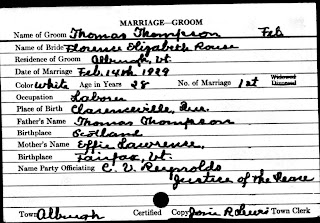 MARRIAGE—GROOM
Name of Groom Thomas Thompson Feb
Name of Bride Florence Elizabeth Rouse
Residence of Groom Alburgh, Vt.
Date of Marriage Feb. 14th 1929
Color White Age in Years 28 No. of Marriage 1st Widowed Divorced
Occupation Laborer
Place of Birth Clarenceville, Que.
Father's Name Thomas Thompson
Birthplace Scotland
Mother's Name Effie Lawrence,
Birthplace Fairfax, Vt.
Name Party Officiating C. V. Reynolds
Justice of The Peace
Town Alburgh Certified Copy Town Clerk